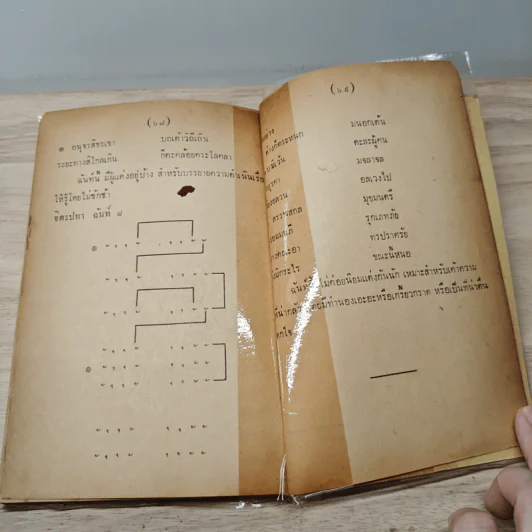 (๖๘)
๑ อนุจรสัญรเขา บถเค้าวิถีเถิน
ระยะทางสิไกลเกิน ก็คะคล้อยคระไลคลา
ฉันท์นี้ มีผู้แต่งอยู่บ้าง สำหรับบรรยายความดำเนินเรื่อง
ให้รู้โดยไม่ชักช้า
จิตรปทา ฉันท์ ๘
(๖๙)
มนอกเต้น
คะละผู้คน
มจลาจล
อลเวงไป
มุขมนตรี
รุกเภทภัย
ทรปราศรัย
ขณะนั้นหนอ
ฉันท์นี้ ไม่ค่อยนิยมแต่งกันนัก เหมาะสำหรับเค้าความ
ที่น่ากลัว โดยมีทำนองเอะอะหรือเกรี้ยวกราด หรือเป็นที่น่าตื่น
ตกใจ